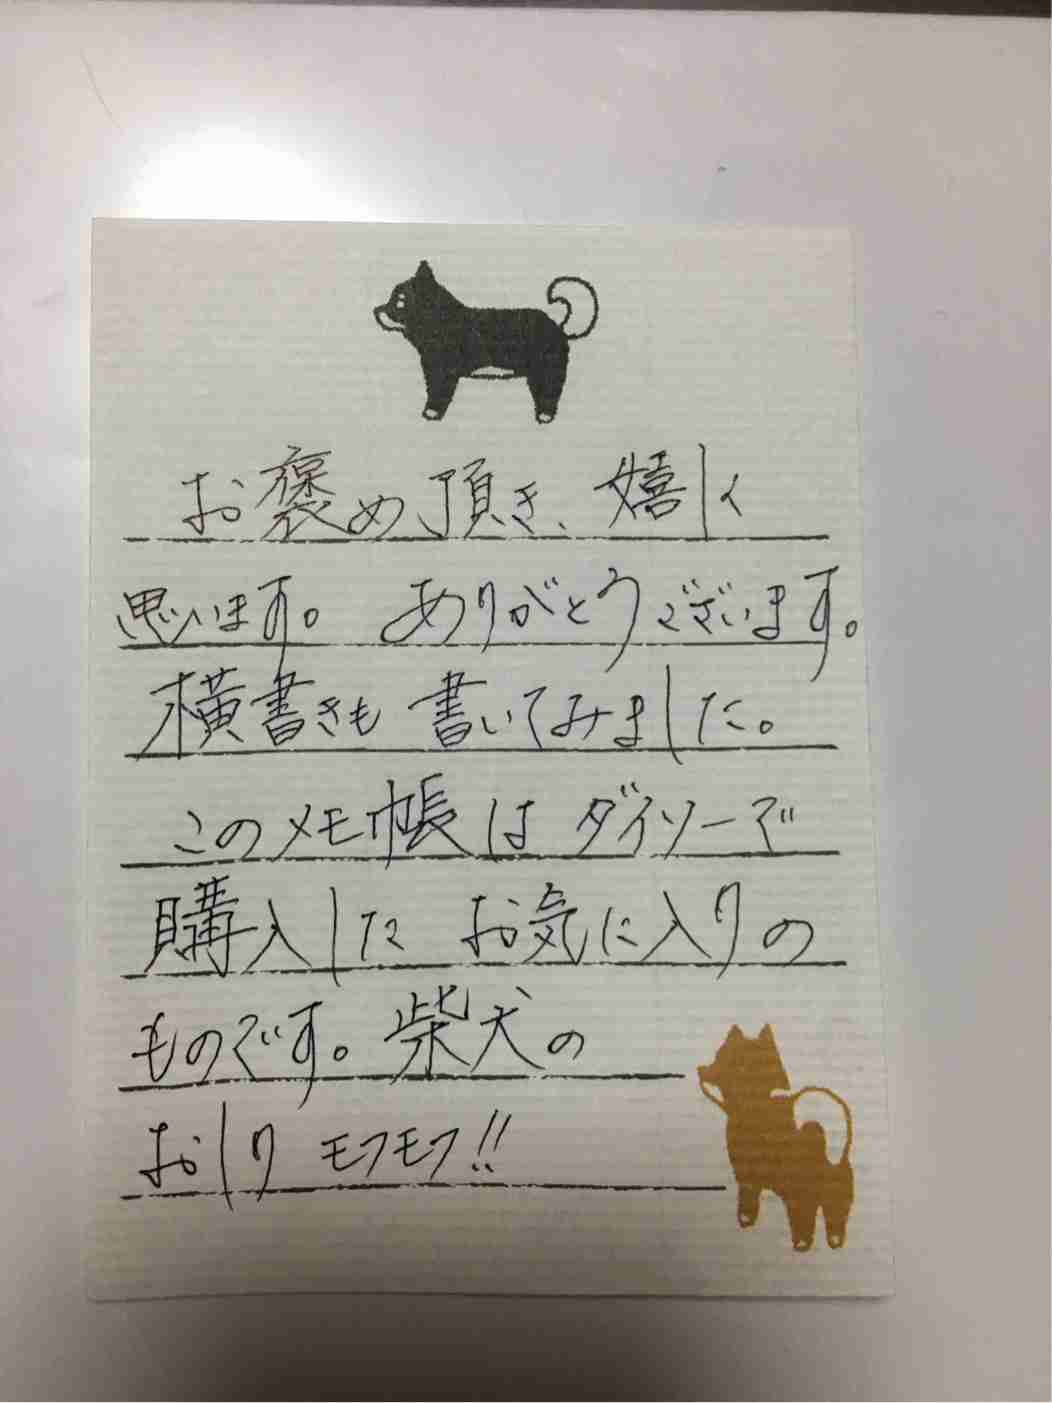 お褒め頂き、嬉しく
思います。ありがとうございます。
横書きも書いてみました。
このメモ帳はダイソーで
購入したお気に入りの
ものです。柴犬の
おしりモフモフ!!